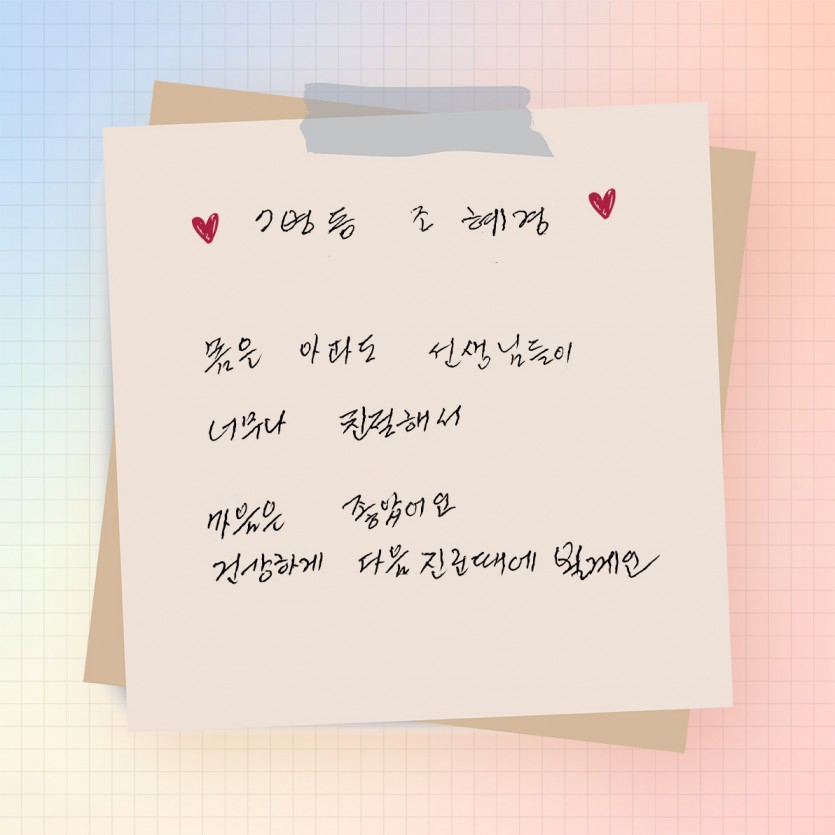 7병동 조 혜경
몸은 아파도 선생님들이
너무나 친절해서
마음은 좋았어요
건강하게 다음 진료때에 뵐게요